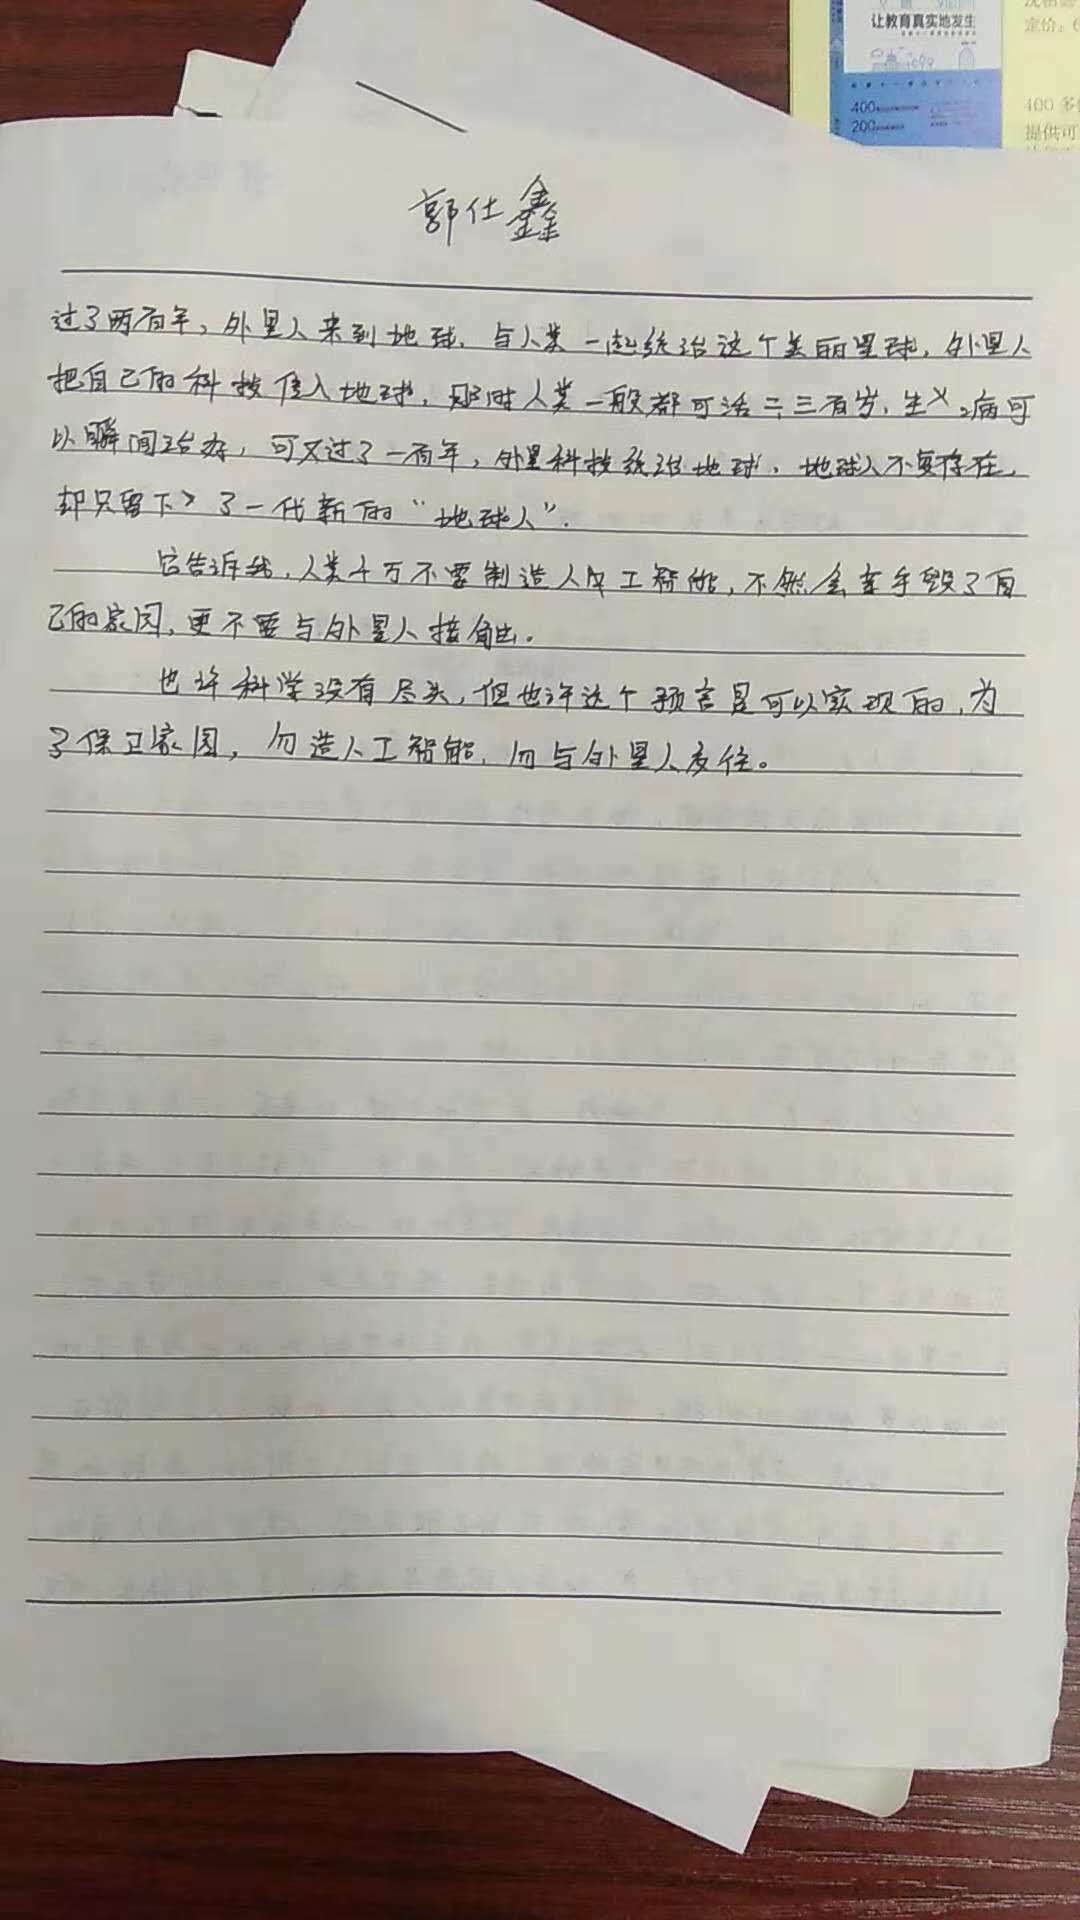 让教育真实地发生
定价:
400
200
400 多
提供可
郭仕鑫
过了两百年,外星人来到地球,与人类一起统治这个美丽星球,外星人
把自己的科技传入地球,那时人类一般都可活二三百岁,生义病可
以瞬间治好,可又过了一百年,外星科技统治地球,地球人不复存在,
却只留下了一代新的“地球人”.
它告诉我,人类千万不要制造人工智能,不然会亲手毁了自
己的家园,更不要与外星人接触.
也许科学没有尽头,但也许这个预言是可以实现的,为
了保卫家园,勿造人工智能,勿与外星人交往。